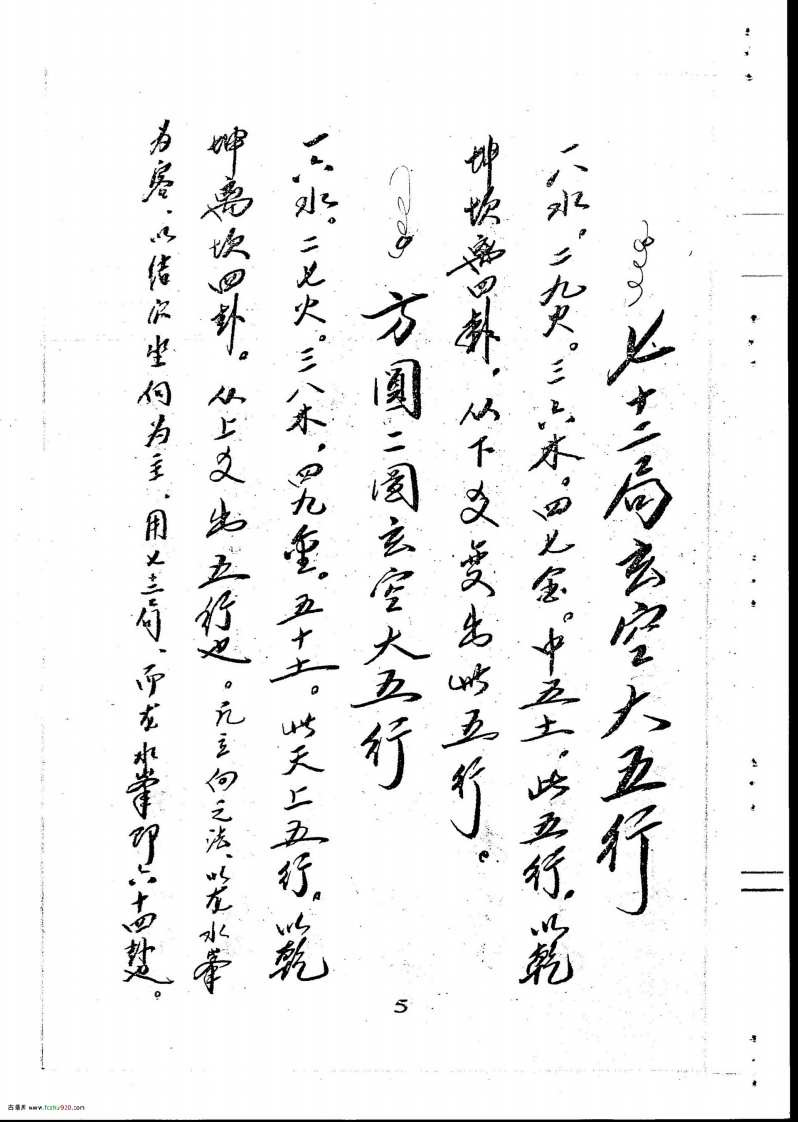 七十二局玄空大五行
一八水。二九火。三六木。四七金。中五土。此五行。以乾
坤坎离四卦，从下爻变出此五行。
方圆二图玄空大五行
一六水。二七火。三八木，四九金。五十土。此天上五行。以乾
坤离坎四卦。从上爻出五行也。凡立向之法、以龙水峯
为客、以结穴坐向为主、用七十二局、而龙水峯即六十四卦也。
5
古籍库 www.fczhu920.com